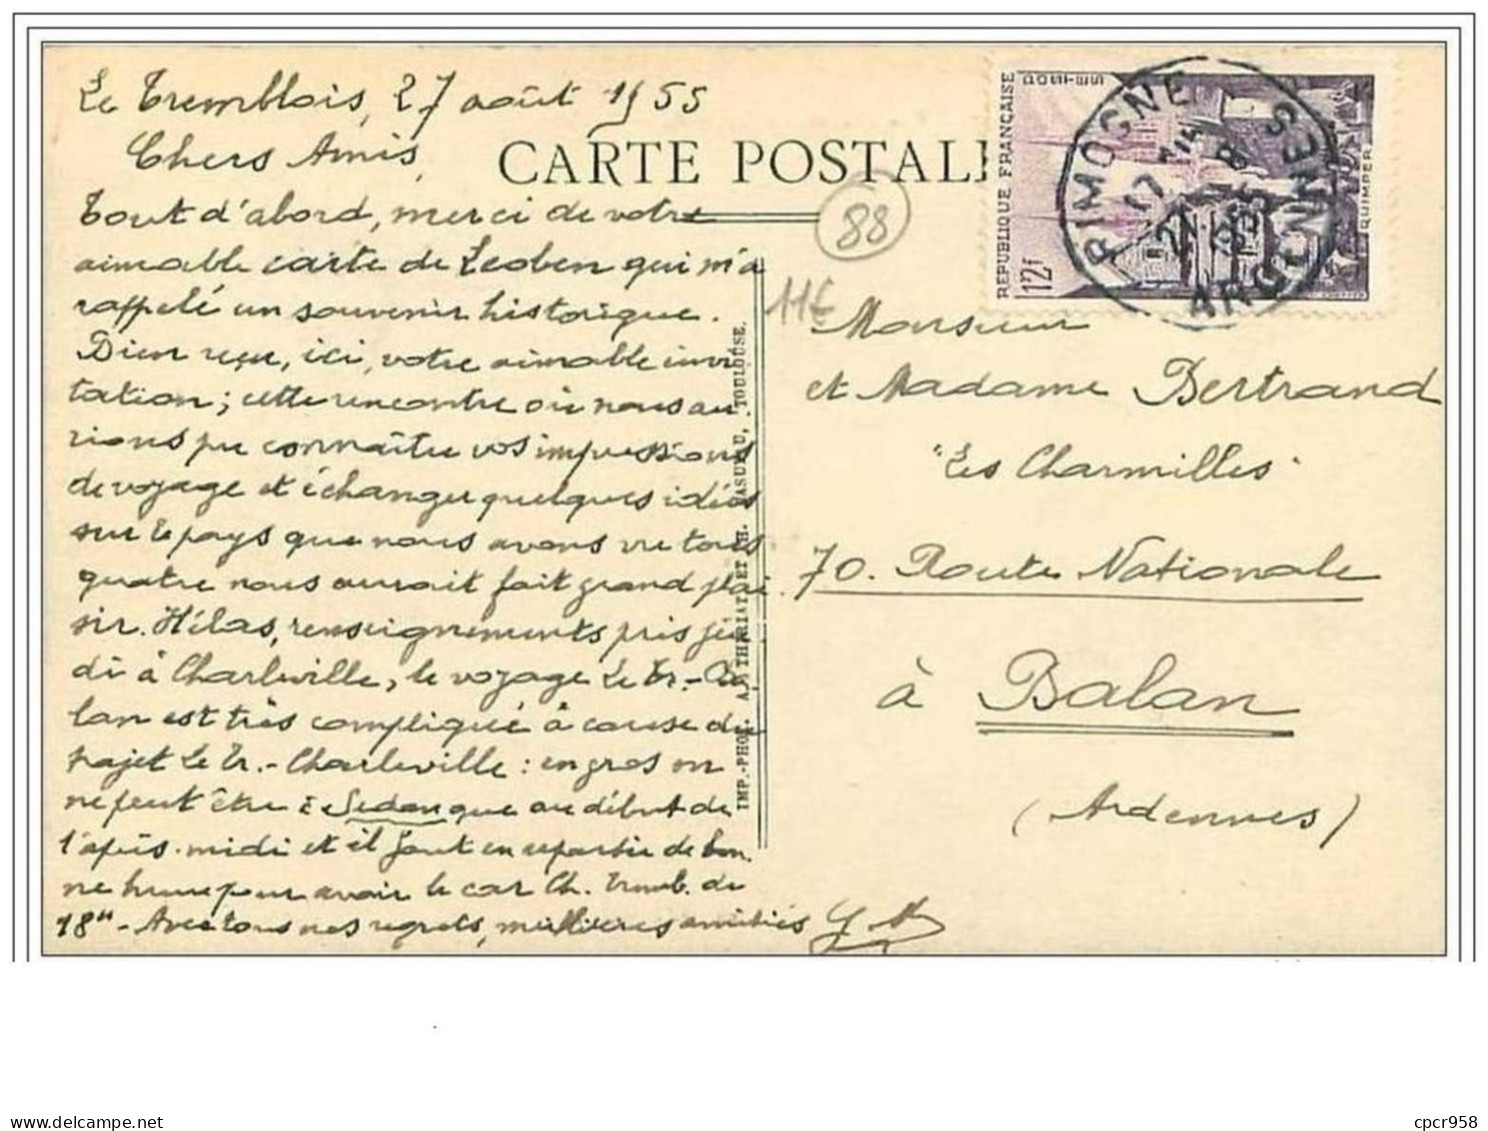 Le Tremblois, 27 août 1955
Chers Amis,
CARTE POSTALE
Tout d'abord, merci de votre
aimable carte de Leoben qui m'a
rappelé un souvenir historique.
Bien reçu, ici, votre aimable invi
tation ; cette rencontre où nous au
rions pu connaître vos impressions
de voyage et échanger quelques idées
sur le pays que nous avons vu tous
quatre nous aurait fait grand plai
sir. Hélas, renseignements pris jeu
di à Charleville, le voyage Le Tr.-Ba
lan est très compliqué à cause du
trajet Le Tr.-Charleville : en gros on
ne peut être à Sedan que au début de
l'après-midi et il faut en repartir de bon
ne heure pour avoir le car Ch. Tremb. de
18h - Avec tous nos regrets, meilleures amitiés
88
11€
IMP.-PHOT. TOULOUSE.
REPUBLIQUE FRANÇAISE
POSTES
12f
QUIMPER
RIMOGNE
17 H
27 8
1955
ARDENNES
Monsieur
et Madame Bertrand
"Les Charmilles"
70. Route Nationale
à Balan
(Ardennes)
delcampe.net
cpcr958